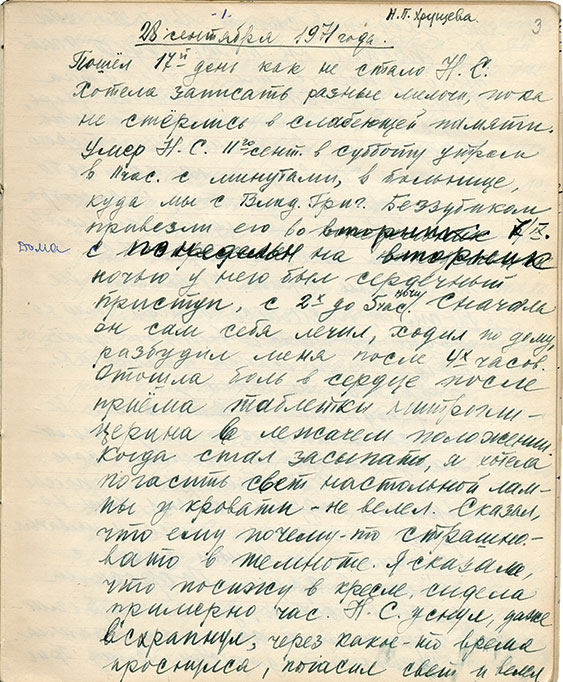 -1.
Н.П. Хрущева.
3
28 сентября 1971 года.
Пошёл 17й день как не стало Н.С.
Хотела записать разные мелочи, пока
не стёрлись в слабеющей памяти.
Умер Н.С. 11го сент. в субботу утром
в 11 час. с минутами, в больнице,
куда мы с Влад. Григ. Беззубиком
привезли его во вторник 7/IX.
Дома
с понедельн на вторник
ночью у него был сердечный
приступ, с 2х до 5 час. ночи Сначала
он сам себя лечил, ходил по дому,
разбудил меня после 4х часов.
Отошла боль в сердце после
приёма таблетки нитрогли-
церина в лежачем положении.
Когда стал засыпать, я хотела
погасить свет настольной лам-
пы у кровати - не велел. Сказал,
что ему почему-то страшно-
вато в темноте. Я сказала,
что посижу в кресле, сидела
примерно час. Н.С. уснул, даже
всхрапнул, через какое-то время
проснулся, погасил свет и велел